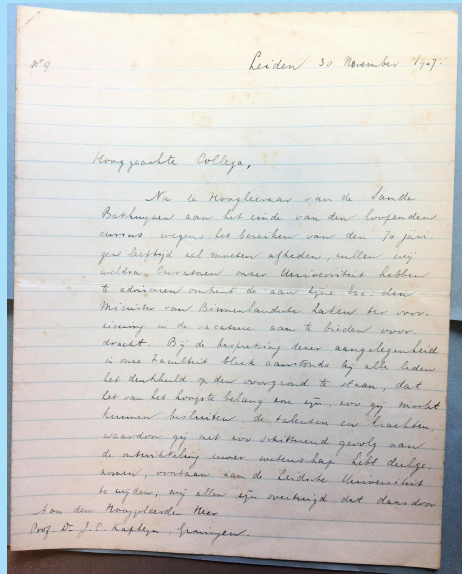 No 9
Leiden 30 November 1907.
Hooggeachte Collega,
Nu de Hoogleeraar van de Sande
Bakhuyzen aan het einde van den loopenden
cursus wegens het bereiken van den 70 jari-
gen leeftijd zal moeten aftreden, zullen wij
weldra Curatoren onzer Universiteit hebben
te adviseeren omtrent de aan Zijne Exc. den
Minister van Binnenlandsche Zaken ter voor-
ziening in de vacature aan te bieden voor-
dracht. Bij de bespreking dezer aangelegenheid
in onze Faculteit bleek aanstonds bij alle leden
het denkbeeld op den voorgrond te staan, dat
het van het hoogste belang zou zijn, zoo gij mocht
kunnen besluiten, de talenten en krachten,
waardoor gij met zoo schitterend gevolg aan
de ontwikkeling uwer wetenschap hebt deelge-
nomen, voortaan aan de Leidsche Universiteit
te wijden; wij allen zijn overtuigd dat daardoor
Aan den Hooggeleerde Heer
Prof. Dr. J. C. Kapteyn, Groningen.